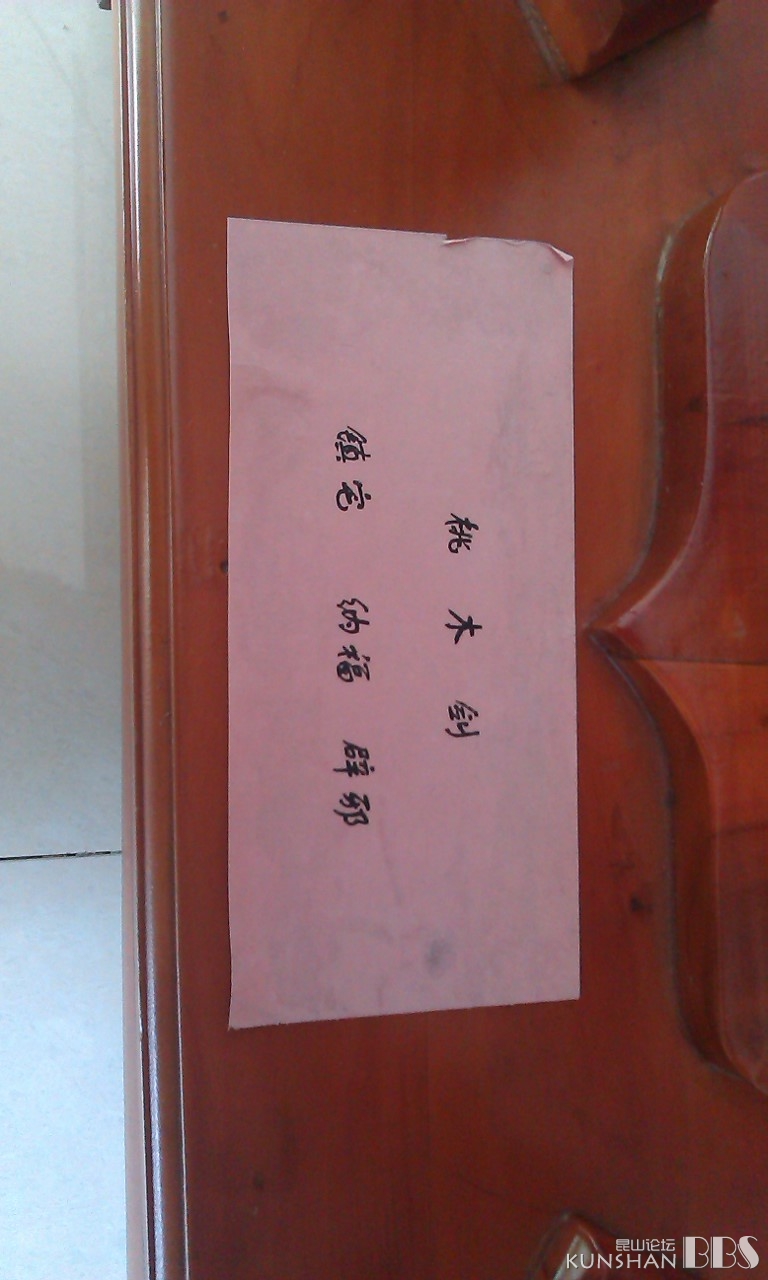 桃木剑
镇宅 纳福 辟邪
昆山论坛
KUNSHAN BBS